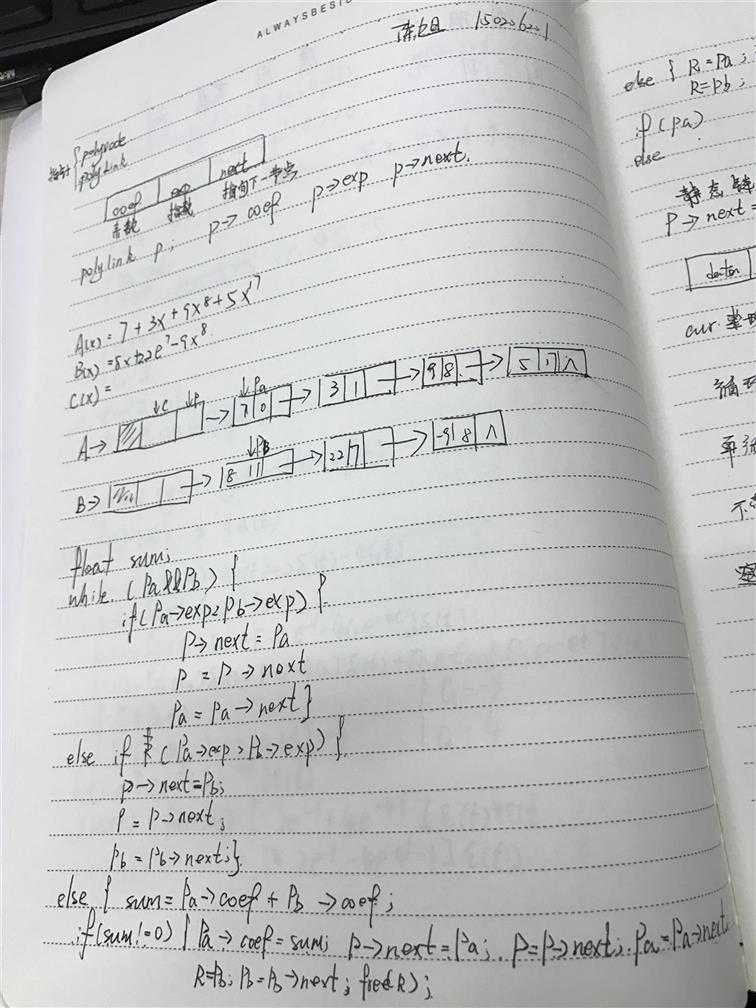 ALWAYSBESI
15020620
指针 { polynode
polylink
coef exp next
系数 指数 指向下一节点
polylink p; p→coef p→exp p→next.
A(x) = 7 + 3x + 9x^8 + 5x^17
B(x) = 8x + 22e^7 - 9x^8
C(x) =
↓C ↓P ↓Pa
A→ 7 0 → 3 1 → 9 8 → 5 17 ∧
↓PB
B→ 8 1 → 22 7 → -9 8 ∧
float sum;
while (Pa&&Pb) {
if(Pa→exp<Pb→exp) {
P→next = Pa
P = P→next
Pa = Pa→next}
else if (Pa→exp>Pb→exp) {
P→next=Pb;
P = P→next;
Pb = Pb→next;}
else { sum = Pa→coef + Pb→coef;
if(sum!=0) { Pa→coef = sum; P→next=Pa; P=P→next; Pa=Pa→next
R=Pb; Pb=Pb→next; free(R);
else { R=Pa;
R=Pb;
if(Pa)
else
静态链
P→next =
data
cur
循环